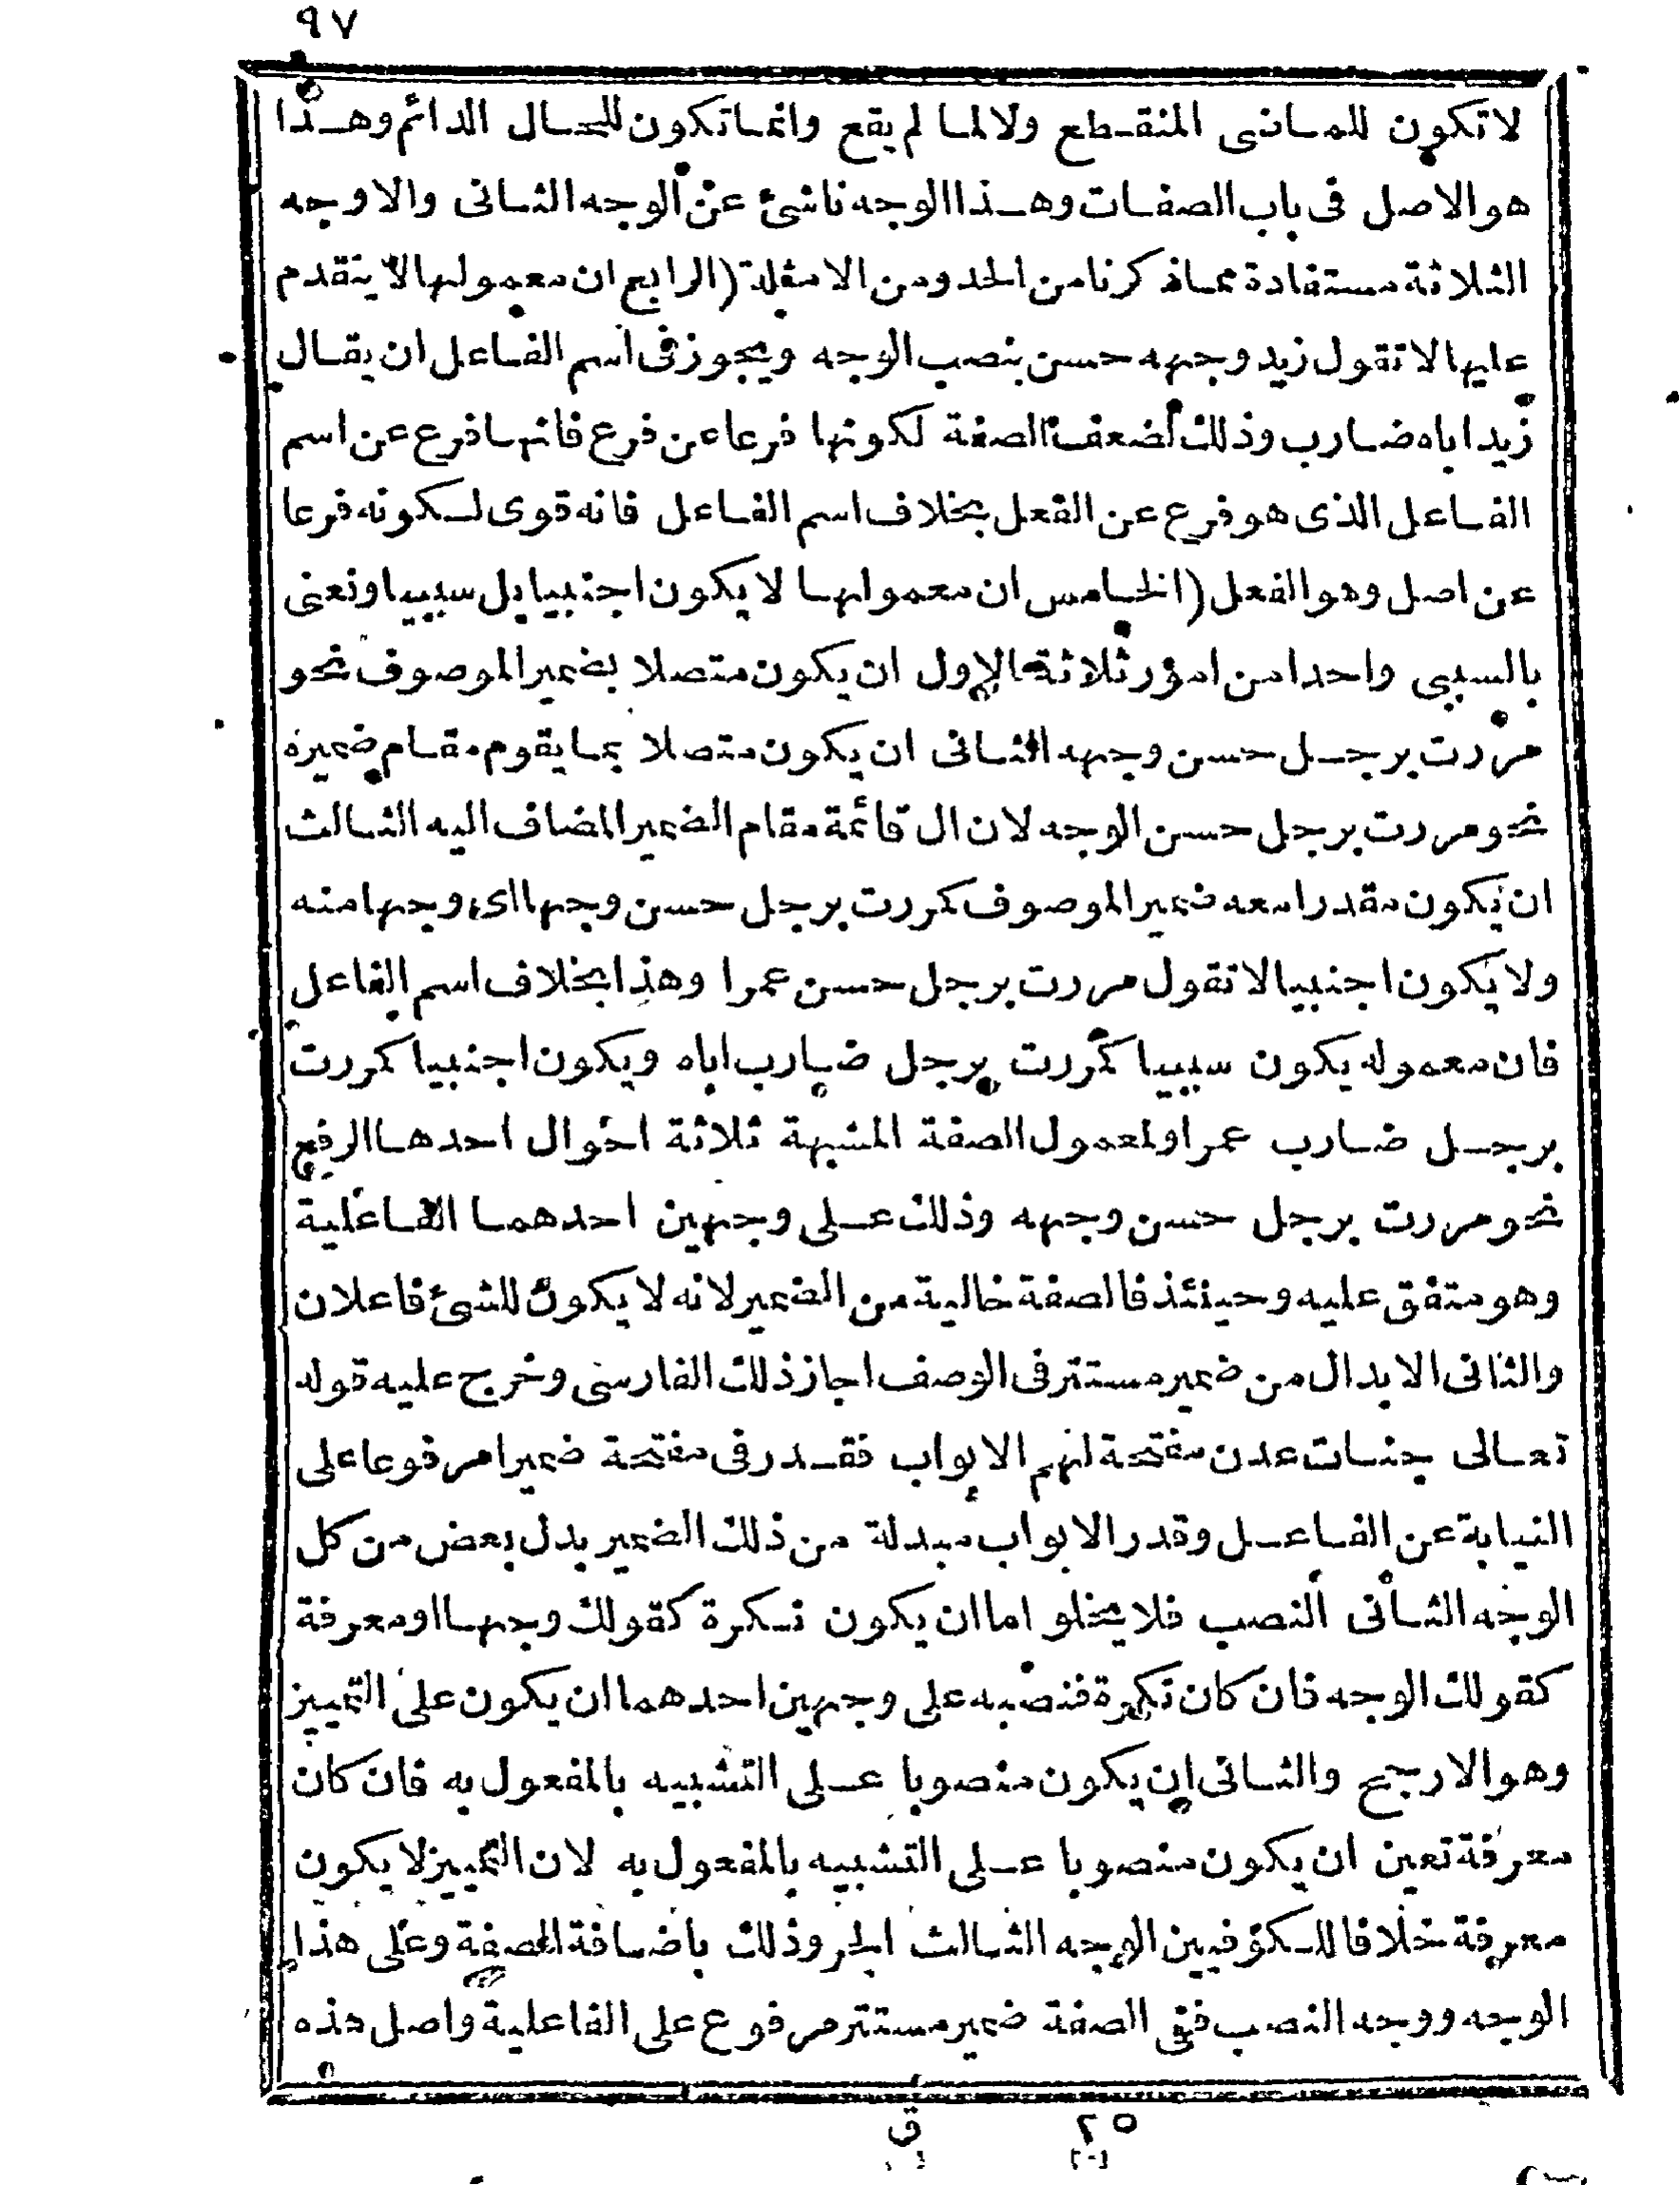 ٩٧
لا تكون للماضى المنقطع ولا لما لم يقع وانما تكون للحال الدائم وهذا
هو الاصل فى باب الصفات وهذا الوجه ناشئ عن الوجه الثانى والاوجه
الثلاثة مستفادة مماذكرنا من الحد ومن الامثلة (الرابع ان معمولها لا يتقدم
عليها لا تقول زيد وجهه حسن بنصب الوجه ويجوز فى اسم الفاعل ان يقال
زيد اباه ضارب وذلك لضعف الصفة لكونها فرعا عن فرع فانها فرع عن اسم
الفاعل الذى هو فرع عن الفعل بخلاف اسم الفاعل فانه قوى لكونه فرعا
عن اصل وهو الفعل (الخامس ان معمولها لا يكون اجنبيا بل سببيا ونعنى
بالسببى واحدا من امور ثلاثة الاول ان يكون متصلا بضمير الموصوف نحو
مررت برجل حسن وجهه الثانى ان يكون متصلا بما يقوم مقام ضميره
نحو مررت برجل حسن الوجه لان ال قائمة مقام الضمير المضاف اليه الثالث
ان يكون مقدرا معه ضمير الموصوف كمررت برجل حسن وجها اى وجها منه
ولا يكون اجنبيا لا تقول مررت برجل حسن عمرا وهذا بخلاف اسم الفاعل
فان معموله يكون سببيا كمررت برجل ضارب اباه ويكون اجنبيا كمررت
برجل ضارب عمرا ولمعمول الصفة المشبهة ثلاثة احوال احدها الرفع
نحو مررت برجل حسن وجهه وذلك على وجهين احدهما الفاعلية
وهو متفق عليه وحينئذ فالصفة خالية من الضمير لانه لا يكون للشئ فاعلان
والثانى الابدال من ضمير مستتر فى الوصف اجاز ذلك الفارسى وخرج عليه قوله
تعالى جنات عدن مفتحة لهم الابواب فقدر فى مفتحة ضميرا مرفوعا على
النيابة عن الفاعل وقدر الابواب مبدلة من ذلك الضمير بدل بعض من كل
الوجه الثانى النصب فلا يخلو اما ان يكون نكرة كقولك وجها او معرفة
كقولك الوجه فان كان نكرة فنصبه على وجهين احدهما ان يكون على التمييز
وهو الارجح والثانى ان يكون منصوبا على التشبيه بالمفعول به فان كان
معرفة تعين ان يكون منصوبا على التشبيه بالمفعول به لان التمييز لا يكون
معرفة خلافا للكوفيين الوجه الثالث الجر وذلك باضافة الصفة وعلى هذا
الوجه ووجه النصب ففى الصفة ضمير مستتر مرفوع على الفاعلية واصل هذه
٢٥ ق